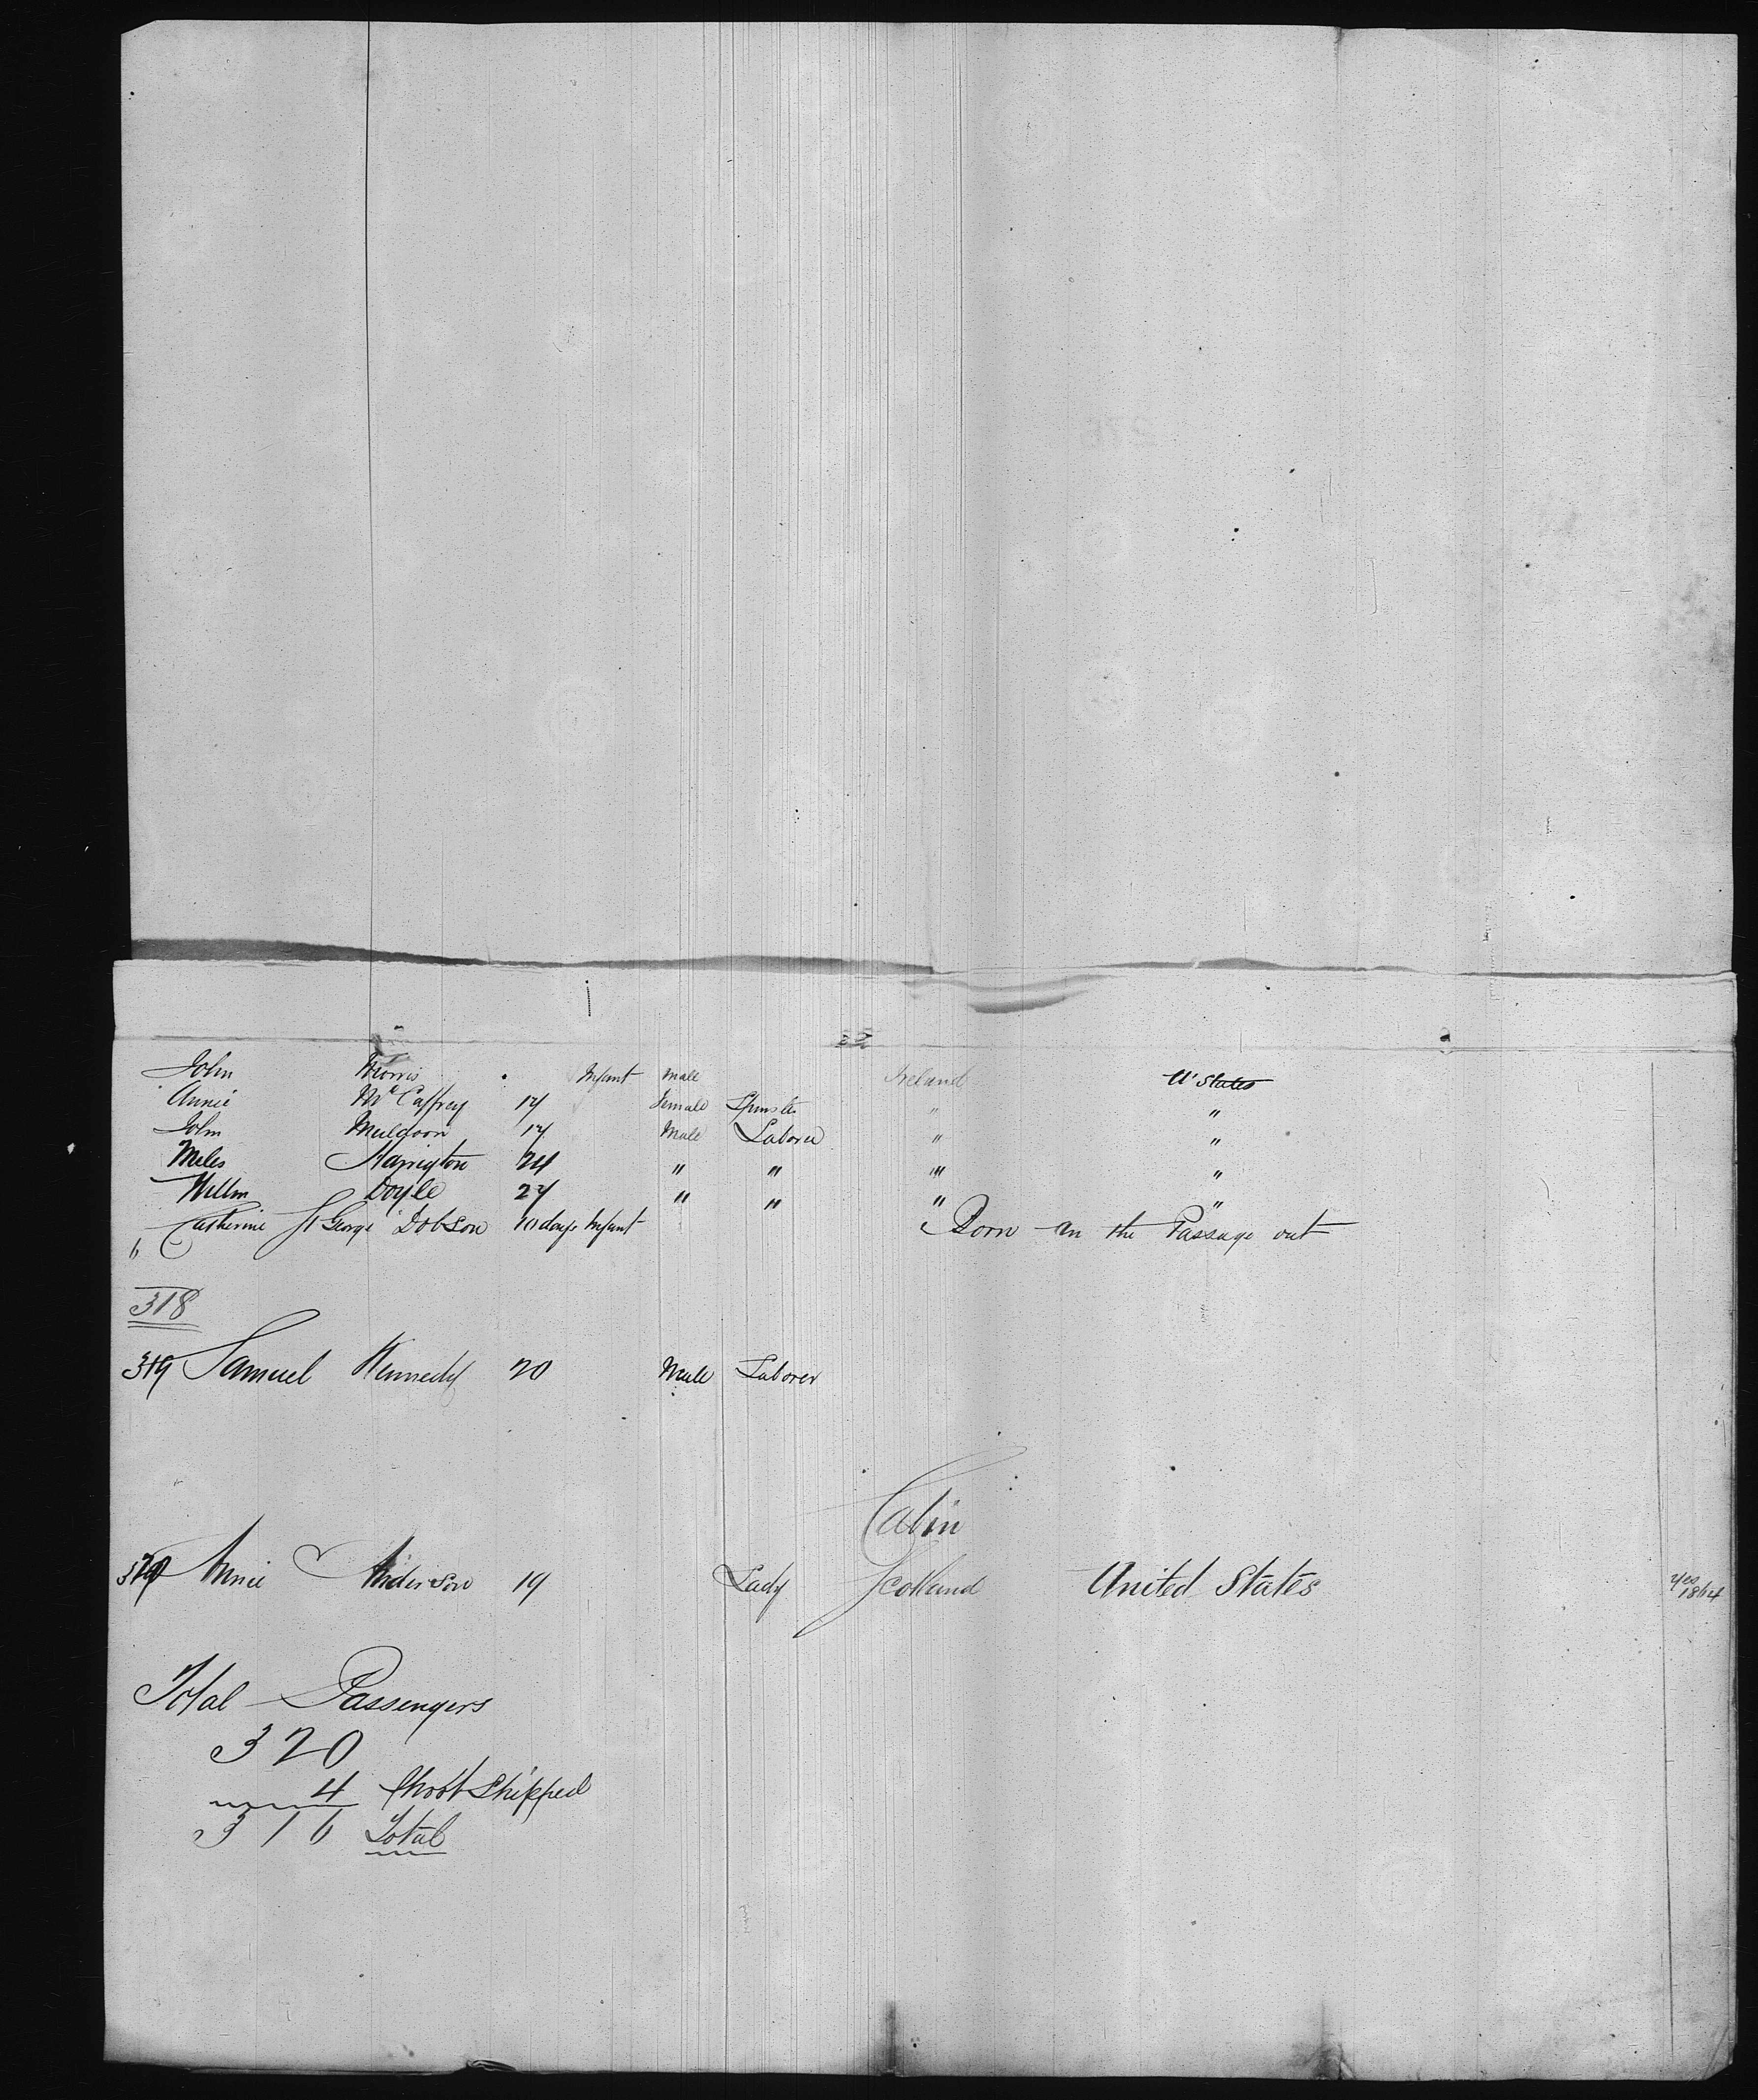 John Morris Infant Male Ireland U States
Annie McCaffrey 17 Female Spinster " "
John Muldoon 17 Male Laborer " "
Miles 24 " " " "
Willm Doyle 27 " " " "
Catherine St George Dobson 10 days Infant Born on the Passage out
318
319 Samuel Kennedy 20 Male Laborer
Cabin
320 Annie Anderson 19 Lady Scotland United States Yes
1864
Total Passengers
320
4 Short Shipped
316 Total